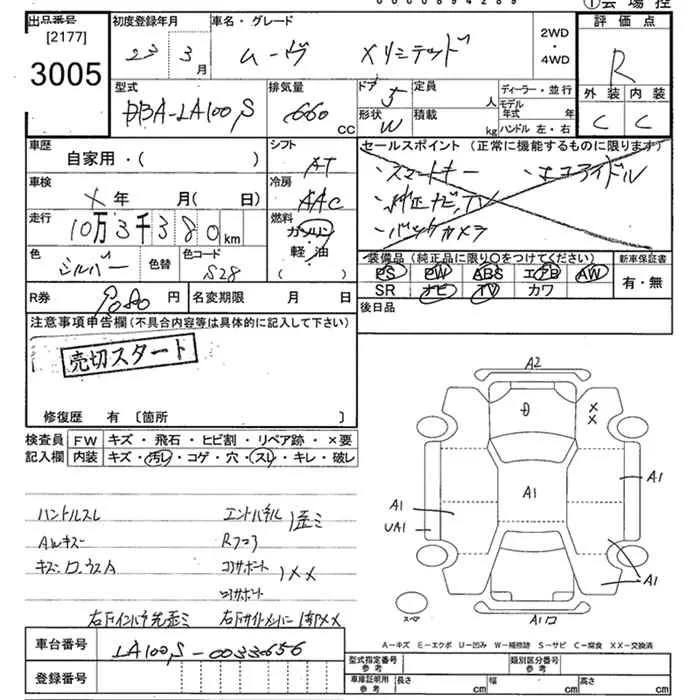 ①会場控
出品番号
[2177]
3005
初度登録年月
23 3月
車名・グレード
ムーヴ Xリミテッド
2WD
・
4WD
評価点
R
外装 内装
C C
型式
DBA-LA100S
排気量
660
CC
ドア 5
形状 W
定員 人
積載 kg
ディーラー・並行
モデル年式 年
ハンドル 左・右
車歴
自家用・( )
シフト
AT
セールスポイント (正常に機能するものに限ります)
・スマートキー ・エコアイドル
・純正ナビ,TV
・バックカメラ
車検
X年 月( 日)
冷房
AAC
走行
10万3千380km
燃料
ガソリン
軽・油
( )
色
シルバー
色替
色コード
S28
装備品 (純正品に限り〇をつけてください)
PS PW ABS エアB AW
SR ナビ TV カワ
新車保証書
有・無
R券 9080円
名変期限 月 日
後日品
注意事項申告欄(不具合内容等は具体的に記入して下さい)
売切スタート
修復歴 有 〔箇所 〕
検査員記入欄
FW キズ・飛石・ヒビ割・リペア跡・×要
内装 キズ・汚レ・コゲ・穴・スレ・キレ・破レ
ハンドルスレ
AWキズ
エンドパネル
コアサポート
A2
X
X
A1
A1
A1
UA1
A1
スペア
A=キズ E=エクボ U=凹み W=補修跡 S=サビ C=腐食 XX=交換済
車台番号
LA100S-0033656
登録番号
型式指定番号
参考
類別区分番号
参考
車庫証明用
参考
長さ cm
幅 cm
高さ cm